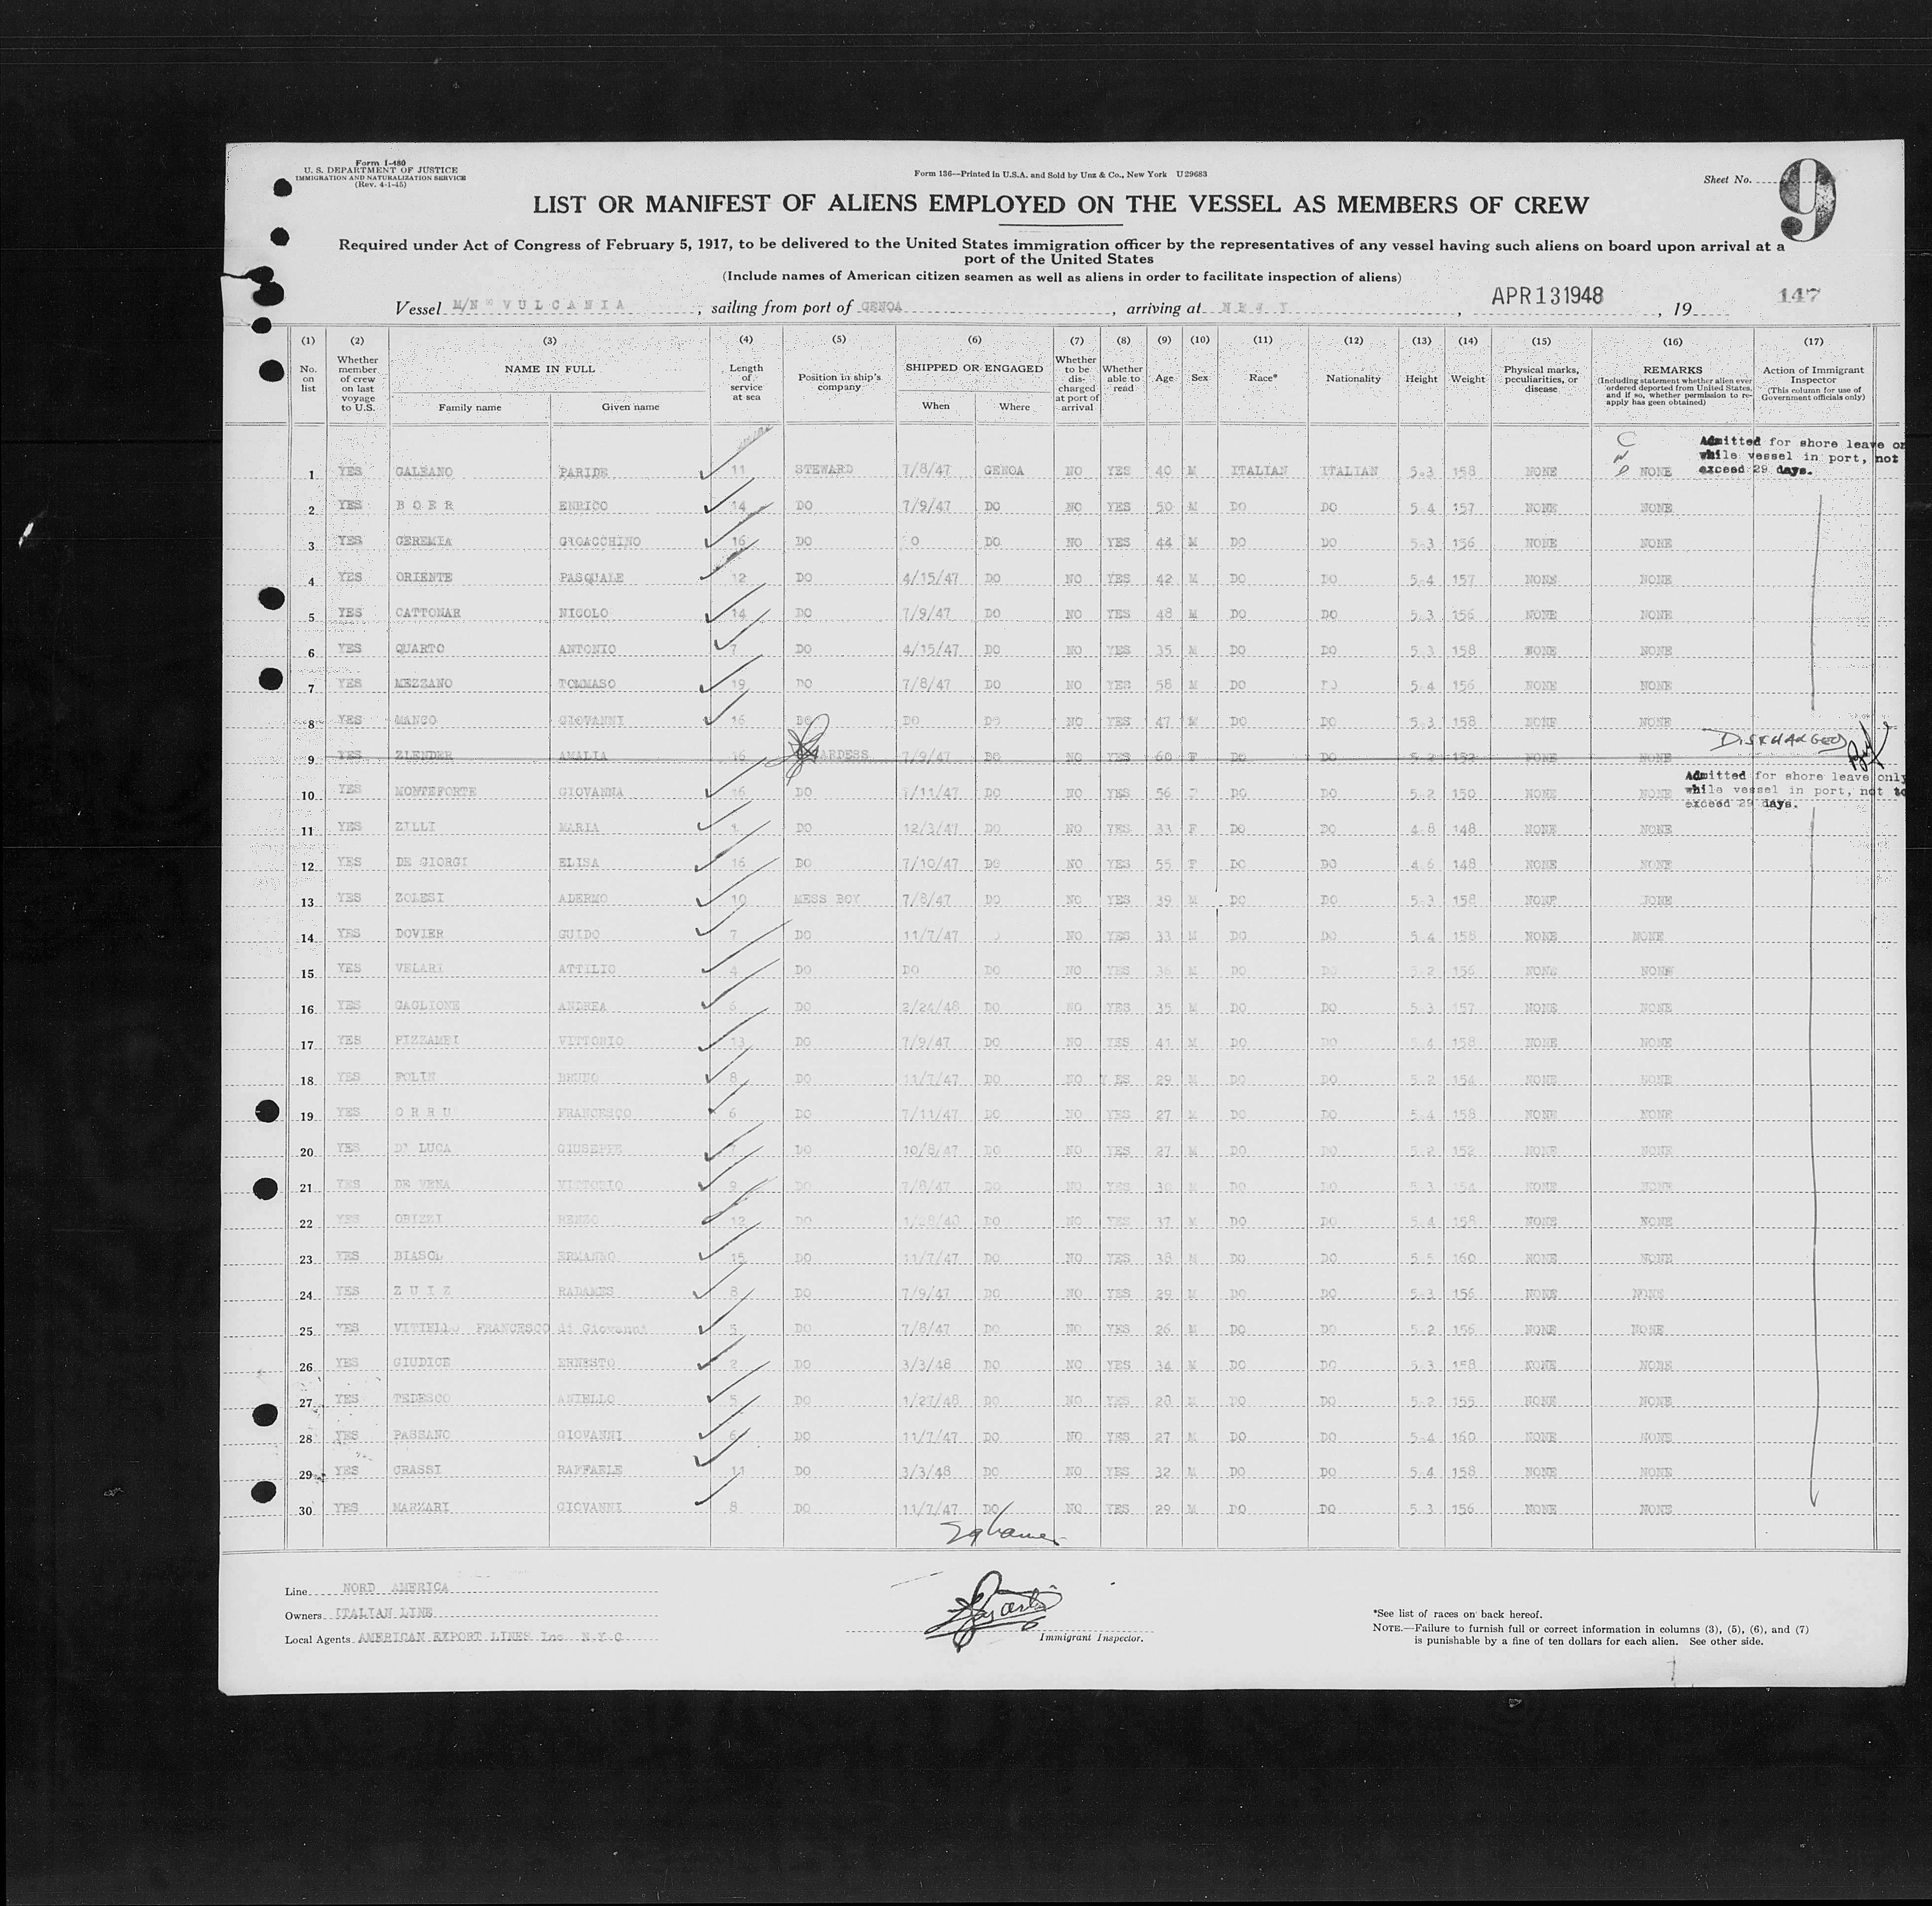 Form I-480
U. S. DEPARTMENT OF JUSTICE
IMMIGRATION AND NATURALIZATION SERVICE
(Rev. 4-1-45)
Form 136—Printed in U.S.A. and Sold by Unz & Co., New York U29683
Sheet No. 9
LIST OR MANIFEST OF ALIENS EMPLOYED ON THE VESSEL AS MEMBERS OF CREW
Required under Act of Congress of February 5, 1917, to be delivered to the United States immigration officer by the representatives of any vessel having such aliens on board upon arrival at a
port of the United States
(Include names of American citizen seamen as well as aliens in order to facilitate inspection of aliens)
Vessel M/N "VULCANIA, sailing from port of GENOA, arriving at NEW Y, APR 13 1948, 19 147
(1) (2) (3) (4) (5) (6) (7) (8) (9) (10) (11) (12) (13) (14) (15) (16) (17)
No. on list
Whether member of crew on last voyage to U.S.
NAME IN FULL
Family name Given name
Length of service at sea
Position in ship's company
SHIPPED OR ENGAGED
When Where
Whether to be discharged at port of arrival
Whether able to read
Age
Sex
Race*
Nationality
Height
Weight
Physical marks, peculiarities, or disease
REMARKS
(Including statement whether alien ever ordered deported from United States, and if so, whether permission to re-apply has geen obtained)
Action of Immigrant Inspector
(This column for use of Government officials only)
Admitted for shore leave on
while vessel in port, not
exceed 29 days.
1 YES GALEANO PARIDE 11 STEWARD 7/8/47 GENOA NO YES 40 M ITALIAN ITALIAN 5.3 158 NONE NONE
2 YES B O E R ENRICO 14 DO 7/9/47 DO NO YES 50 M DO DO 5 4 157 NONE NONE
3 YES GEREMIA GIOACCHINO 16 DO DO NO YES 44 M DO DO 5.3 156 NONE NONE
4 YES ORIENTE PASQUALE 12 DO 4/15/47 DO NO YES 42 M DO DO 5.4 157 NONE NONE
5 YES CATTONAR NICOLO 14 DO 7/9/47 DO NO YES 48 M DO DO 5.3 156 NONE NONE
6 YES QUARTO ANTONIO 7 DO 4/15/47 DO NO YES 35 M DO DO 5.3 158 NONE NONE
7 YES MEZZANO TOMMASO 19 DO 7/8/47 DO NO YES 58 M DO DO 5.4 156 NONE NONE
8 YES MANCO GIOVANNI 16 DO DO DO NO YES 47 M DO DO 5.3 158 NONE NONE
DISCHARGED
9 YES ZLENDER AMALIA 16 ARDESS 7/9/47 DO NO YES 60 F DO DO 5.2 152 NONE NONE
Admitted for shore leave only
while vessel in port, not to
exceed 29 days.
10 YES MONTEFORTE GIOVANNA 16 DO 1/11/47 DO NO YES 56 DO DO 5.2 150 NONE NONE
11 YES ZILLI MARIA DO 12/3/47 DO NO YES 33 F DO DO 4.8 148 NONE NONE
12 YES DE GIORGI ELISA 16 DO 7/10/47 DO NO YES 55 F DO DO 4.6 148 NONE NONE
13 YES ZOLESI ADERMO 10 MESS BOY 7/8/47 DO NO YES 39 M DO DO 5.3 158 NONE NONE
14 YES DOVIER GUIDO 7 DO 11/7/47 NO YES 33 M DO DO 5.4 158 NONE NONE
15 YES VELARI ATTILIO 4 DO DO DO NO YES 36 M DO DO 5.2 156 NONE NONE
16 YES GAGLIONE ANDREA 6 DO 2/24/48 DO NO YES 35 M DO DO 5.3 157 NONE NONE
17 YES PIZZAMEI VITTORIO 13 DO 7/9/47 DO NO YES 41 M DO DO 5.4 158 NONE NONE
18 YES POLIN BRUNO 8 DO 11/7/47 DO NO YES 29 M DO DO 5.2 154 NONE NONE
19 YES O R R U FRANCESCO 6 DO 7/11/47 DO NO YES 27 M DO DO 5.4 158 NONE NONE
20 YES DI LUCA GIUSEPPE DO 10/8/47 DO NO YES 27 M DO DO 5.2 152 NONE NONE
21 YES DE VENA VITTORIO 9 DO 7/8/47 DO NO YES 30 M DO DO 5.3 154 NONE NONE
22 YES ORIZZI RENZO 12 DO 1/28/48 DO NO YES 37 M DO DO 5.4 158 NONE NONE
23 YES BIASOL ERMANNO 15 DO 11/7/47 DO NO YES 38 M DO DO 5.5 160 NONE NONE
24 YES Z U I Z RADAMES 8 DO 7/9/47 DO NO YES 29 M DO DO 5.3 156 NONE NONE
25 YES VITIELLO FRANCESCO di Giovanni 5 DO 7/8/47 DO NO YES 26 M DO DO 5.2 156 NONE NONE
26 YES GIUDICE ERNESTO 2 DO 3/3/48 DO NO YES 34 M DO DO 5.3 158 NONE NONE
27 YES TEDESCO ANIELLO 5 DO 1/27/48 DO NO YES 28 M DO DO 5.2 155 NONE NONE
28 YES PASSANO GIOVANNI 6 DO 11/7/47 DO NO YES 27 M DO DO 5.4 160 NONE NONE
29 YES GRASSI RAFFAELE 11 DO 3/3/48 DO NO YES 32 M DO DO 5.4 158 NONE NONE
30 YES MARZARI GIOVANNI 8 DO 11/7/47 DO NO YES 29 M DO DO 5.3 156 NONE NONE
Line NORD AMERICA
Owners ITALIAN LINE
Local Agents AMERICAN EXPORT LINES Inc N.Y.C.
Immigrant Inspector.
*See list of races on back hereof.
NOTE.—Failure to furnish full or correct information in columns (3), (5), (6), and (7)
is punishable by a fine of ten dollars for each alien. See other side.